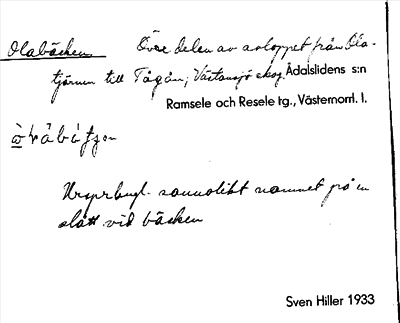 Olabäcken Övre delen av avloppet från Ola-
tjärnen till Tågån; Västansjö skog Ådalslidens s:n
Ramsele och Resele tg., Västernorrl. l.
Urspr. sannolikt namnet på en
slått vid bäcken
Sven Hiller 1933